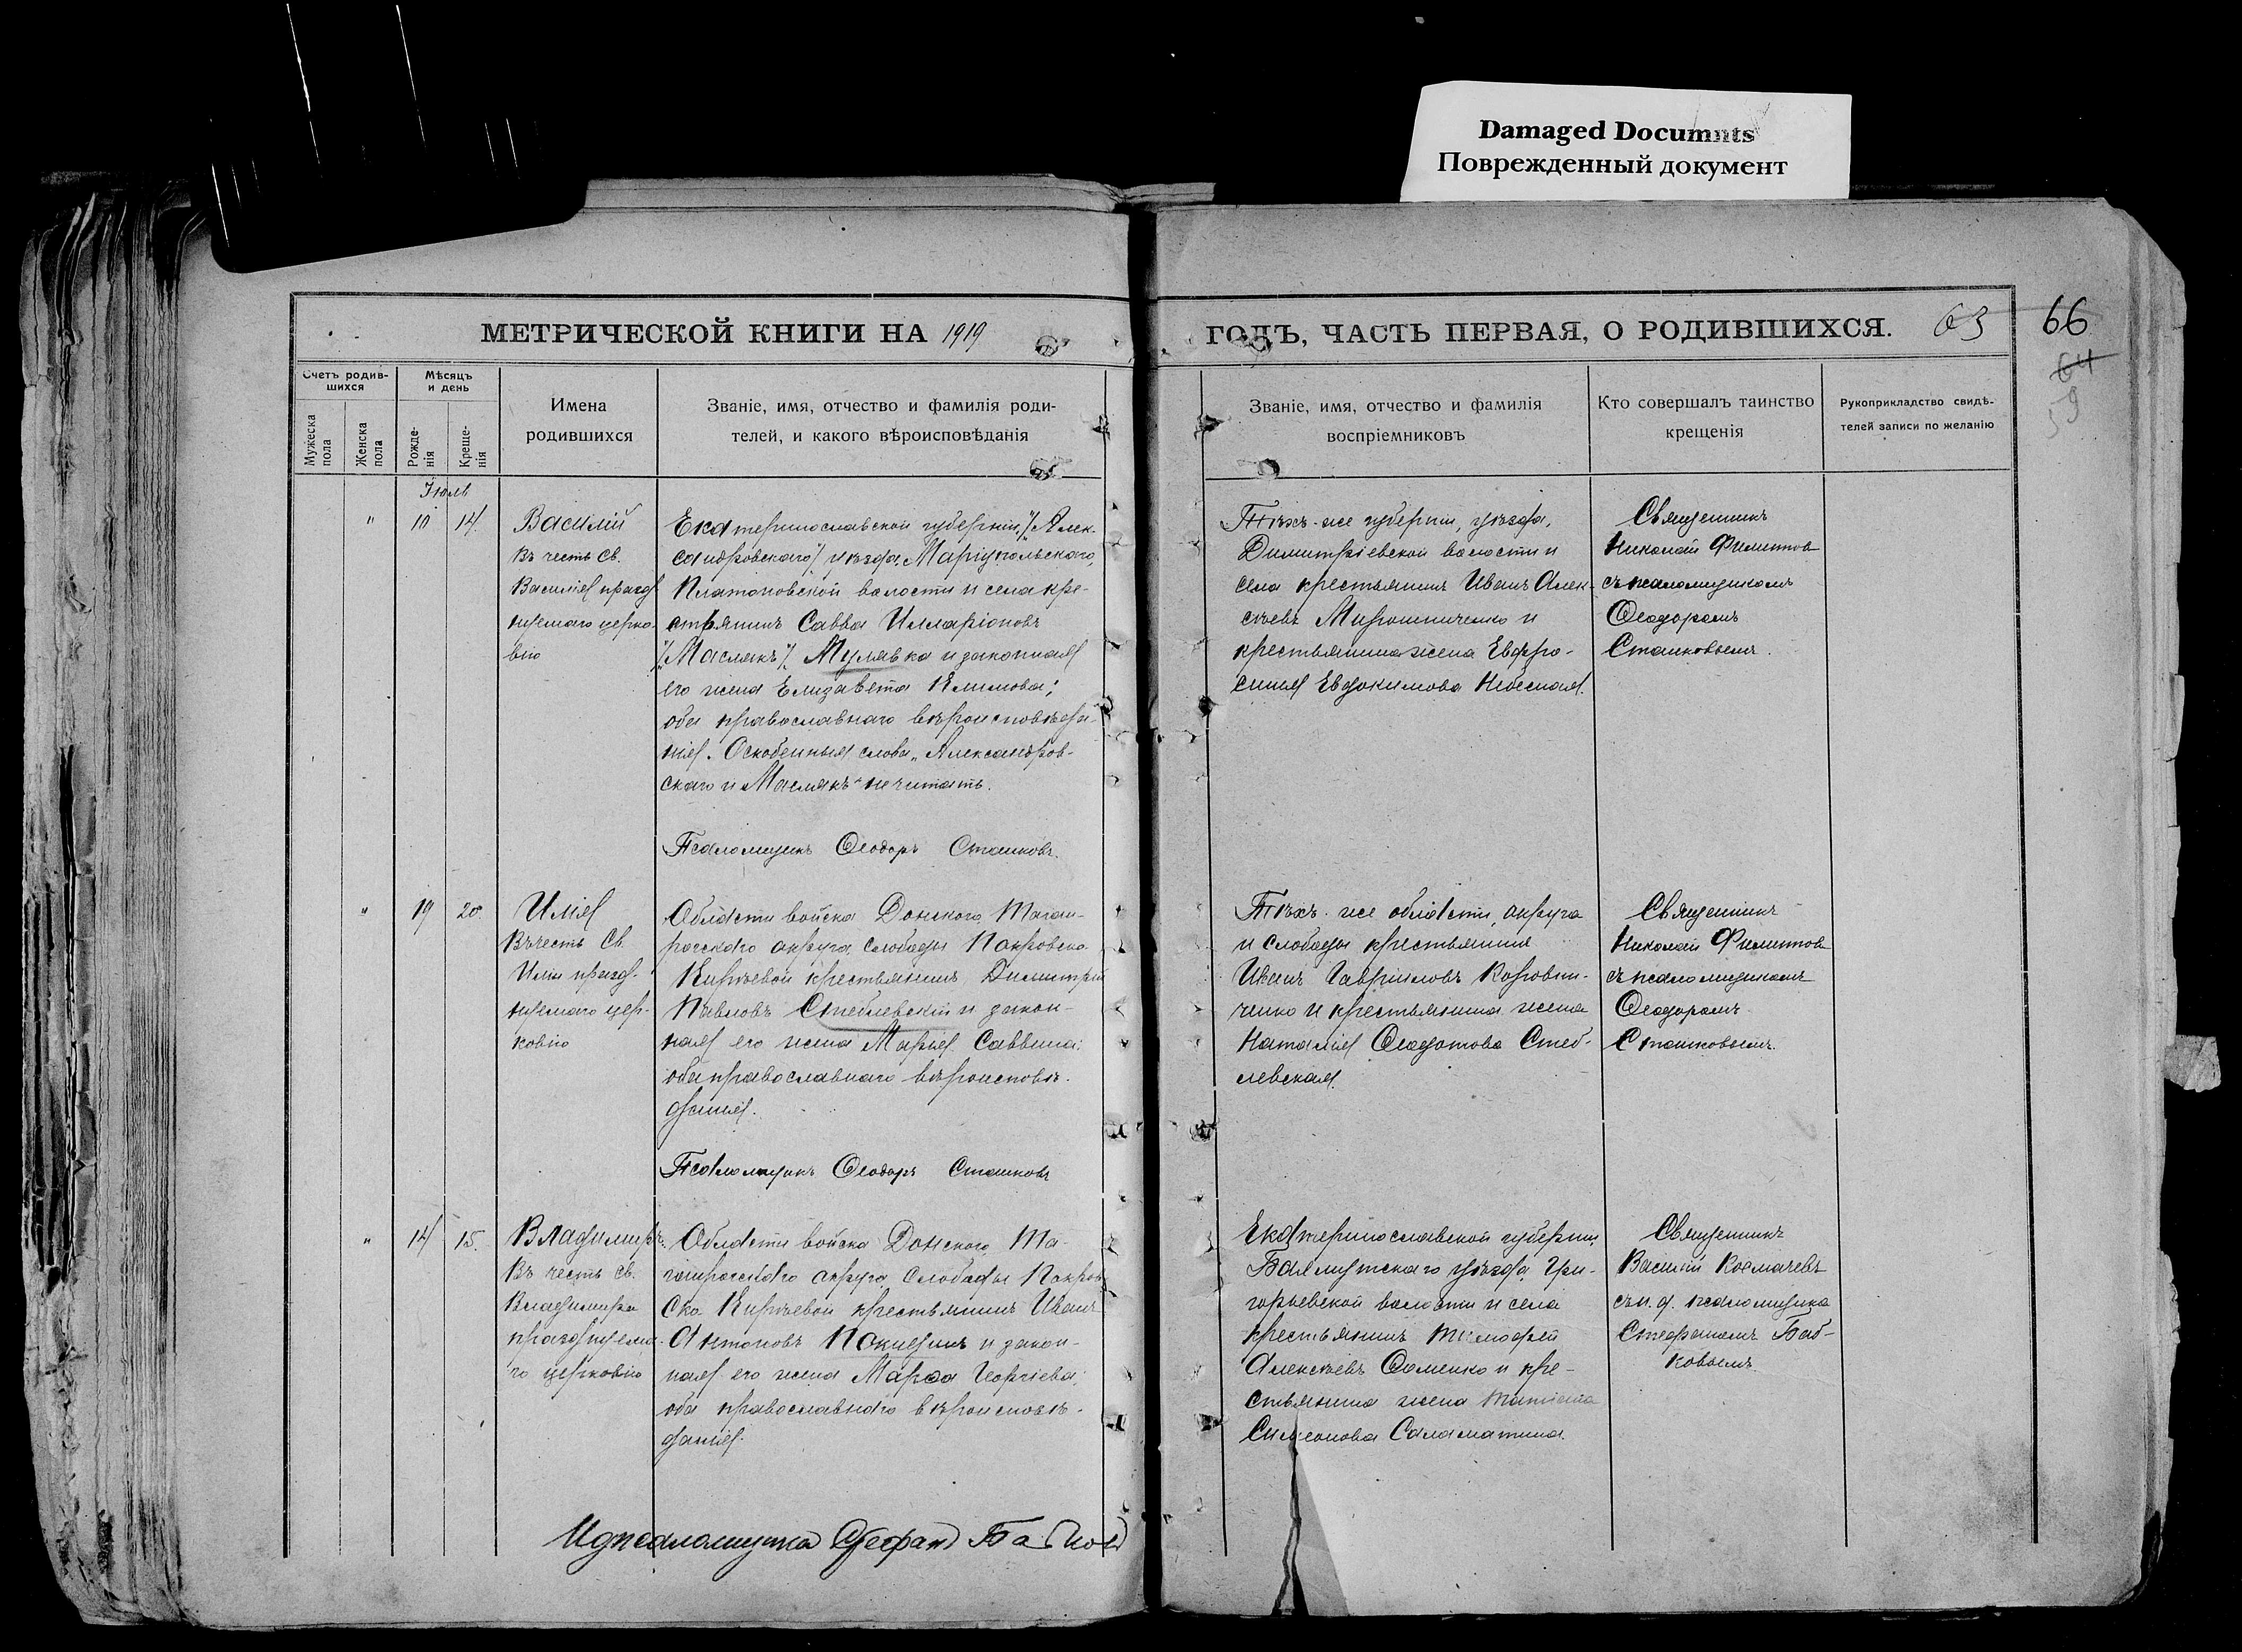 Damaged Documnts
Поврежденный документ
МЕТРИЧЕСКОЙ КНИГИ НА 1919
ГОДЪ, ЧАСТЬ ПЕРВАЯ, О РОДИВШИХСЯ.
63
66
64
59
Счетъ родив-
шихся
Мѣсяцъ
и день
Мужеска
пола
Женска
пола
Рожде-
нія
Креще-
нія
Имена
родившихся
Званіе, имя, отчество и фамилія роди-
телей, и какого вѣроисповѣданія
Званіе, имя, отчество и фамилія
воспріемниковъ
Кто совершалъ таинство
крещенія
Рукоприкладство свидѣ-
телей записи по желанію
Іюль
" 10 14.
Василій
Въ честь Св.
Василія празд-
нуемаго церко-
вію
Екатеринославской губерніи, /Алек-
сандровскаго/ уѣзда, Маріупольскаго,
Платоновской волости и села кре-
стьянинъ Савва Илларіоновъ
/Маслякъ/ Мулявка и законная
его жена Елизавета Климова;
оба православнаго вѣроисповѣда-
нія. Оскобенныя слова „Александров-
скаго и Маслякъ" не читать.
Псаломщикъ Ѳеодоръ Сташковъ.
Тѣхъ-же губерніи, уѣзда,
Димитріевской волости и
села крестьянинъ Иванъ Алек-
сѣевъ Мирошниченко и
крестьянина жена Евфро-
синія Евдокимова Небесная.
Священникъ
Николай Филиппов
съ псаломщикомъ
Ѳеодоромъ
Сташковымъ.
" 19 20.
Илія
Въ честь Св.
Иліи празд-
нуемаго цер-
ковію
Области войска Донского Таган-
рогскаго округа, слободы Покровско-
Кирѣевой крестьянинъ Димитрій
Павловъ Стеблевскій и закон-
ная его жена Марія Саввина;
оба православнаго вѣроисповѣ-
данія.
Псаломщикъ Ѳеодоръ Сташковъ
Тѣхъ-же области, округа
и слободы крестьянинъ
Иванъ Гавриловъ Коровни-
ченко и крестьянина жена
Наталія Ѳеодотова Стеб-
левская.
Священникъ
Николай Филиппов
съ псаломщикомъ
Ѳеодоромъ
Сташковымъ.
" 14 15.
Владимиръ.
Въ честь св.
Владимира
празднуема-
го церковію
Области войска Донского, Та-
ганрогскаго округа, слободы Покров-
ско Кирѣевой крестьянинъ Иванъ
Антоновъ и закон-
ная его жена Марѳа Георгіева;
оба православнаго вѣроисповѣ-
данія.
И д псаломщика Стефанъ Бабковъ
Екатеринославской губерніи,
Бахмутскаго уѣзда, Гри-
горьевской волости и села
крестьянинъ Тимофей
Алексѣевъ Ѳоменко и кре-
стьянина жена Татіана
Симеонова Саламатина.
Священникъ
Василій Космачевъ
съ и. д. псаломщика
Стефаномъ Баб-
ковымъ.